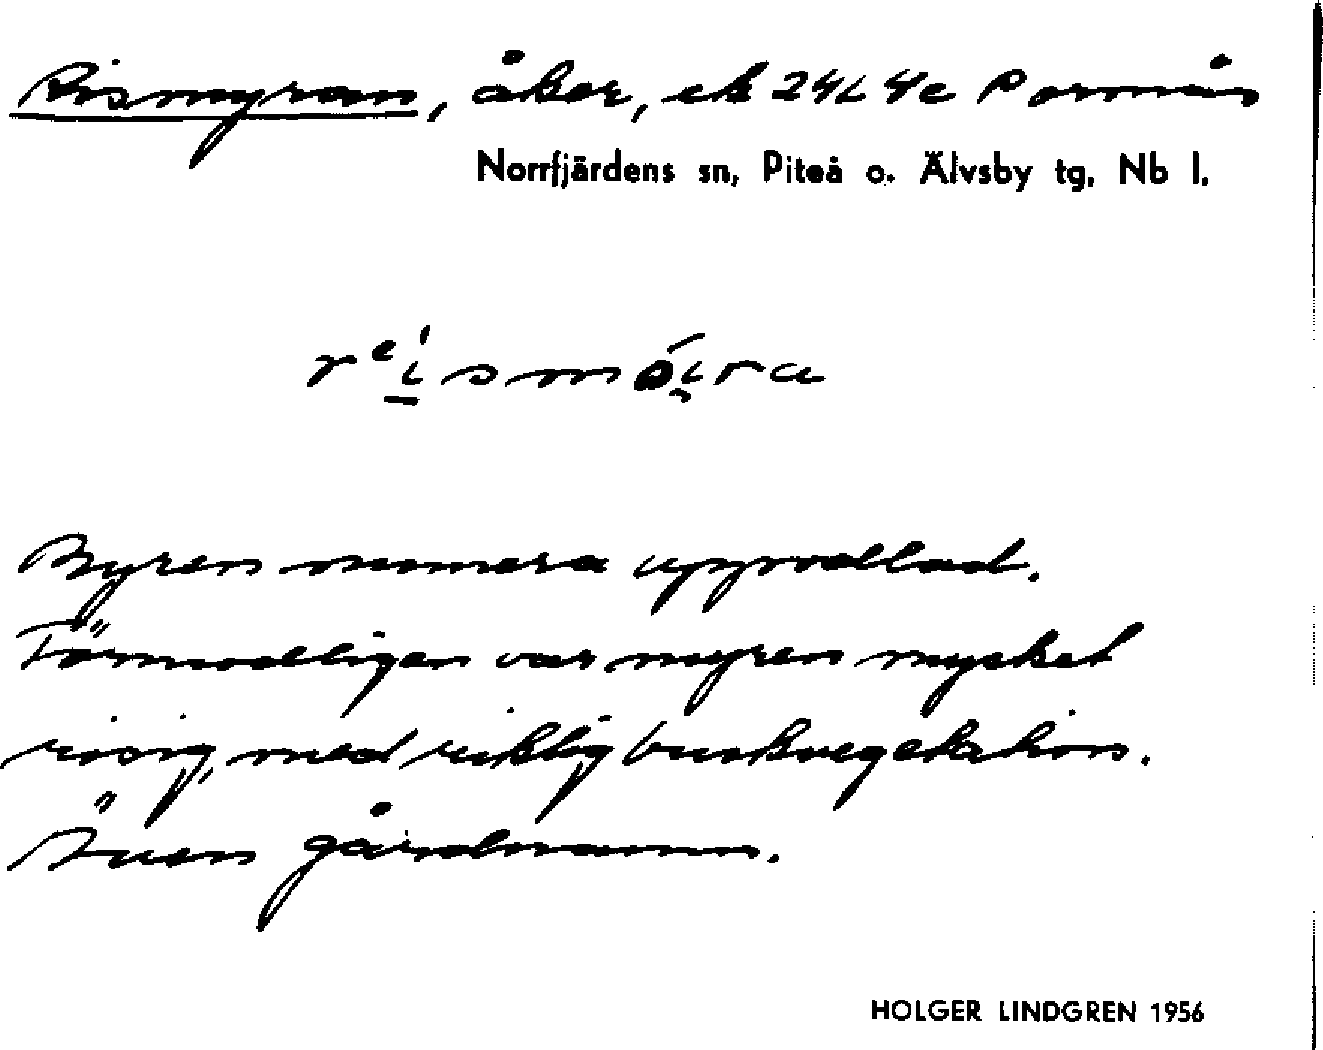 Rismyran, åker, ek 24L4e Pornäs
Norrfjärdens sn, Piteå o. Älvsby tg. Nb l.
reismóira
Myren numera uppodlad.
Förmodligen var myren mycket
risig, med riklig buskvegetation.
Även gårdnamn.
HOLGER LINDGREN 1956